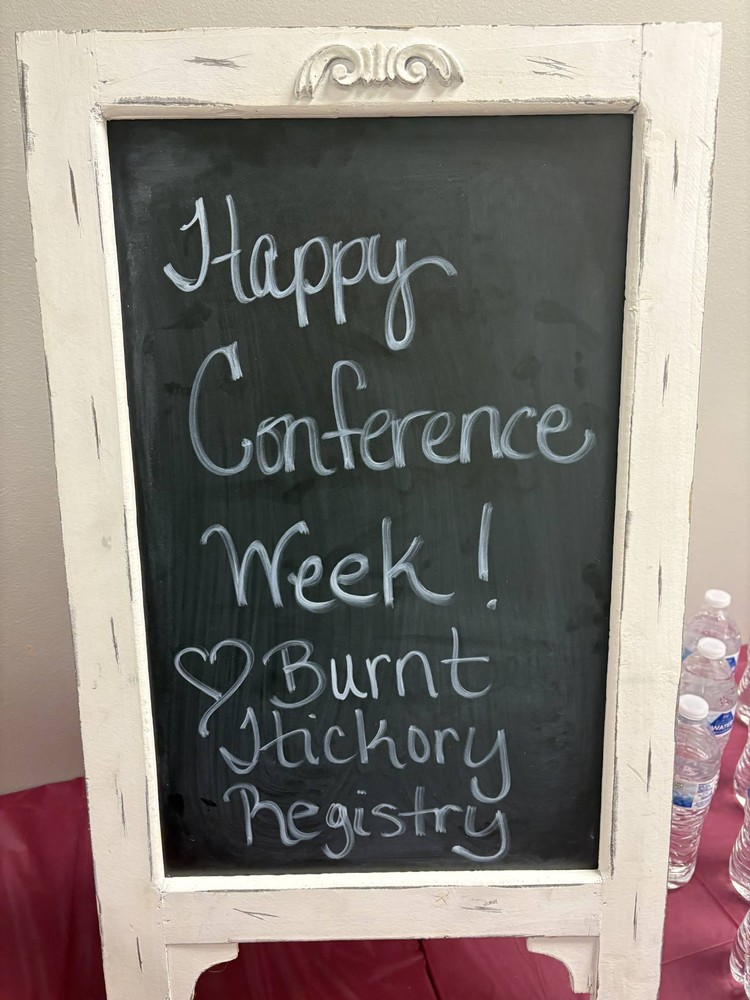 Happy
Conference
Week!
♡ Burnt
Hickory
Registry